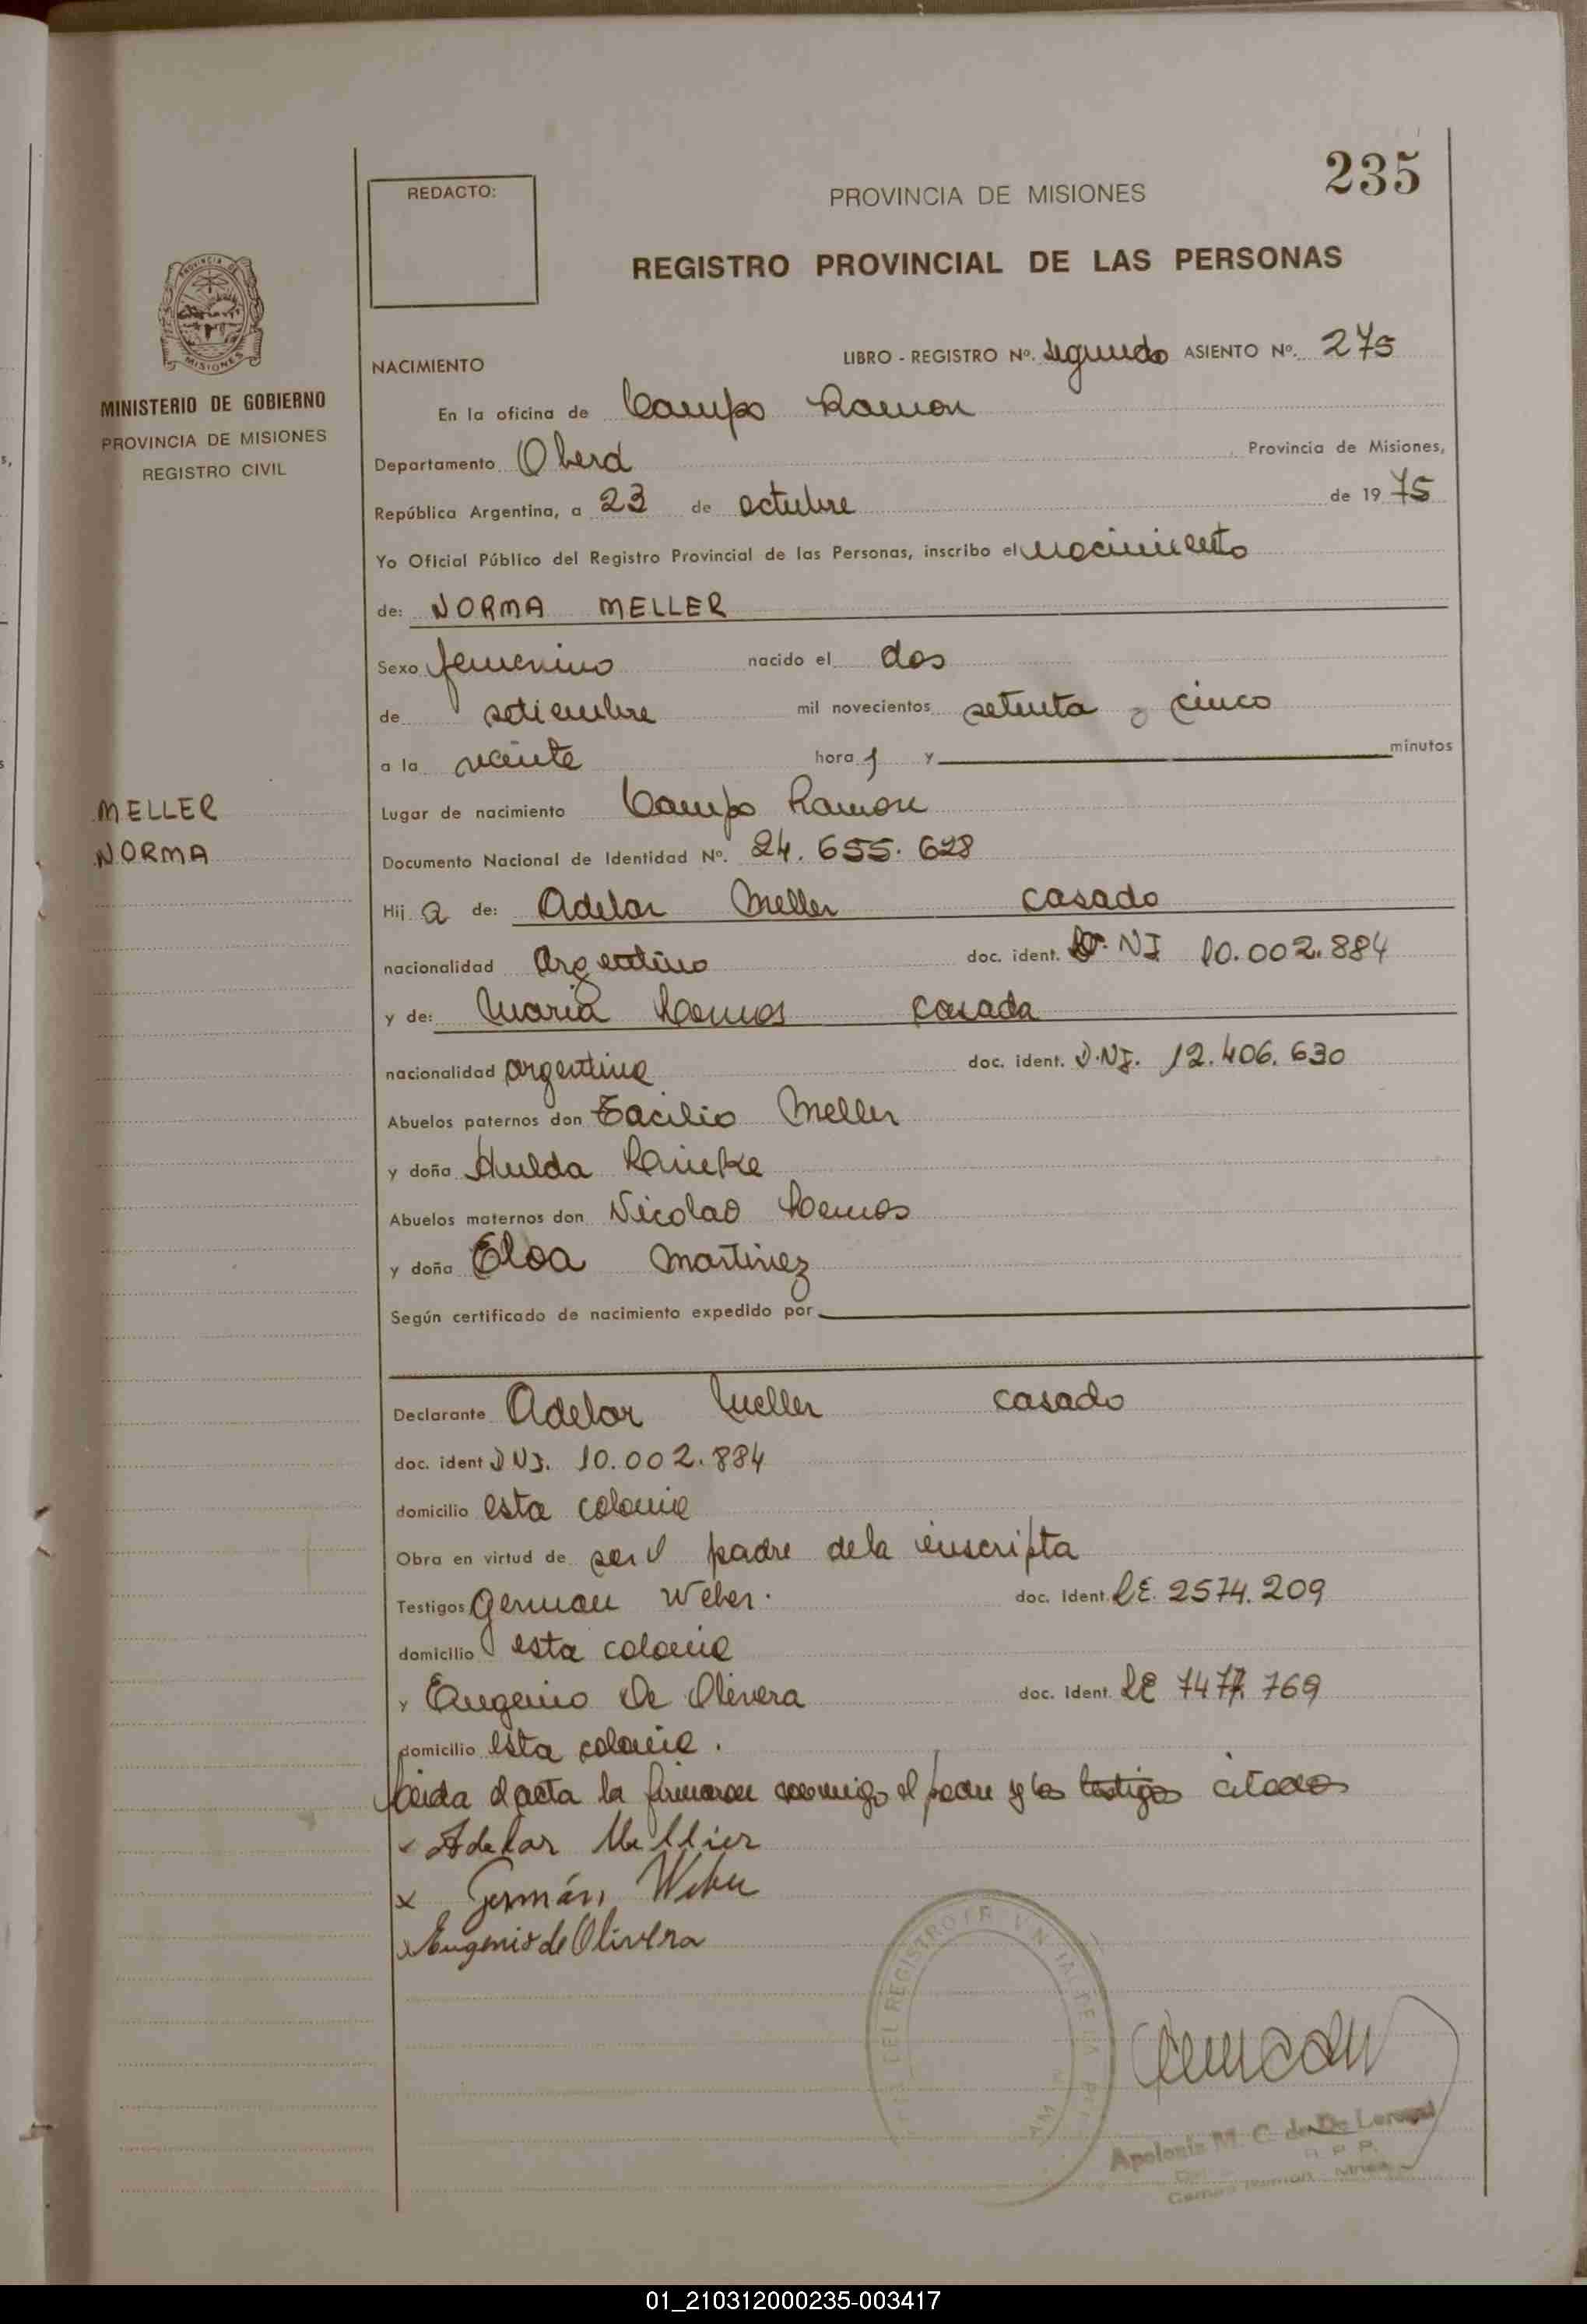 235
REDACTO:
PROVINCIA DE MISIONES
REGISTRO PROVINCIAL DE LAS PERSONAS
PROVINCIA DE
MISIONES
MINISTERIO DE GOBIERNO
PROVINCIA DE MISIONES
REGISTRO CIVIL
NACIMIENTO
LIBRO - REGISTRO Nº. segundo ASIENTO Nº. 275
En la oficina de Campo Ramon
Departamento Oberá Provincia de Misiones,
República Argentina, a 23 de octubre de 1975
Yo Oficial Público del Registro Provincial de las Personas, inscribo el nacimiento
de: NORMA MELLER
Sexo femenino nacido el dos
de setiembre mil novecientos setenta y cinco
a la veinte hora s y minutos
MELLER
NORMA
Lugar de nacimiento Campo Ramon
Documento Nacional de Identidad Nº. 24.655.628
Hij a de: Adelar Meller casado
nacionalidad Argentino doc. ident. D. NI 10.002.884
y de: Maria Ramos casada
nacionalidad argentina doc. ident. D.NI. 12.406.630
Abuelos paternos don Tacilio Meller
y doña Hulda
Abuelos maternos don Nicolao Ramos
y doña Eloa Martinez
Según certificado de nacimiento expedido por
Declarante Adelar Meller casado
doc. ident DNI. 10.002.884
domicilio esta colonia
Obra en virtud de ser el padre de la inscripta
Testigos German Weber. doc. ident. LE. 2574.209
domicilio esta colonia
y Eugenio De Olivera doc. ident. LE 7477.769
domicilio esta colonia.
Leida el acta la firmaron conmigo el padre y los testigos citados
x Adelar Mellier
x Germán Weber
x Eugenio de Olivera
DEL REGISTRO
Apolonia M. C. de De
R P P.
Campo Ramon - Mnes
01_210312000235-003417